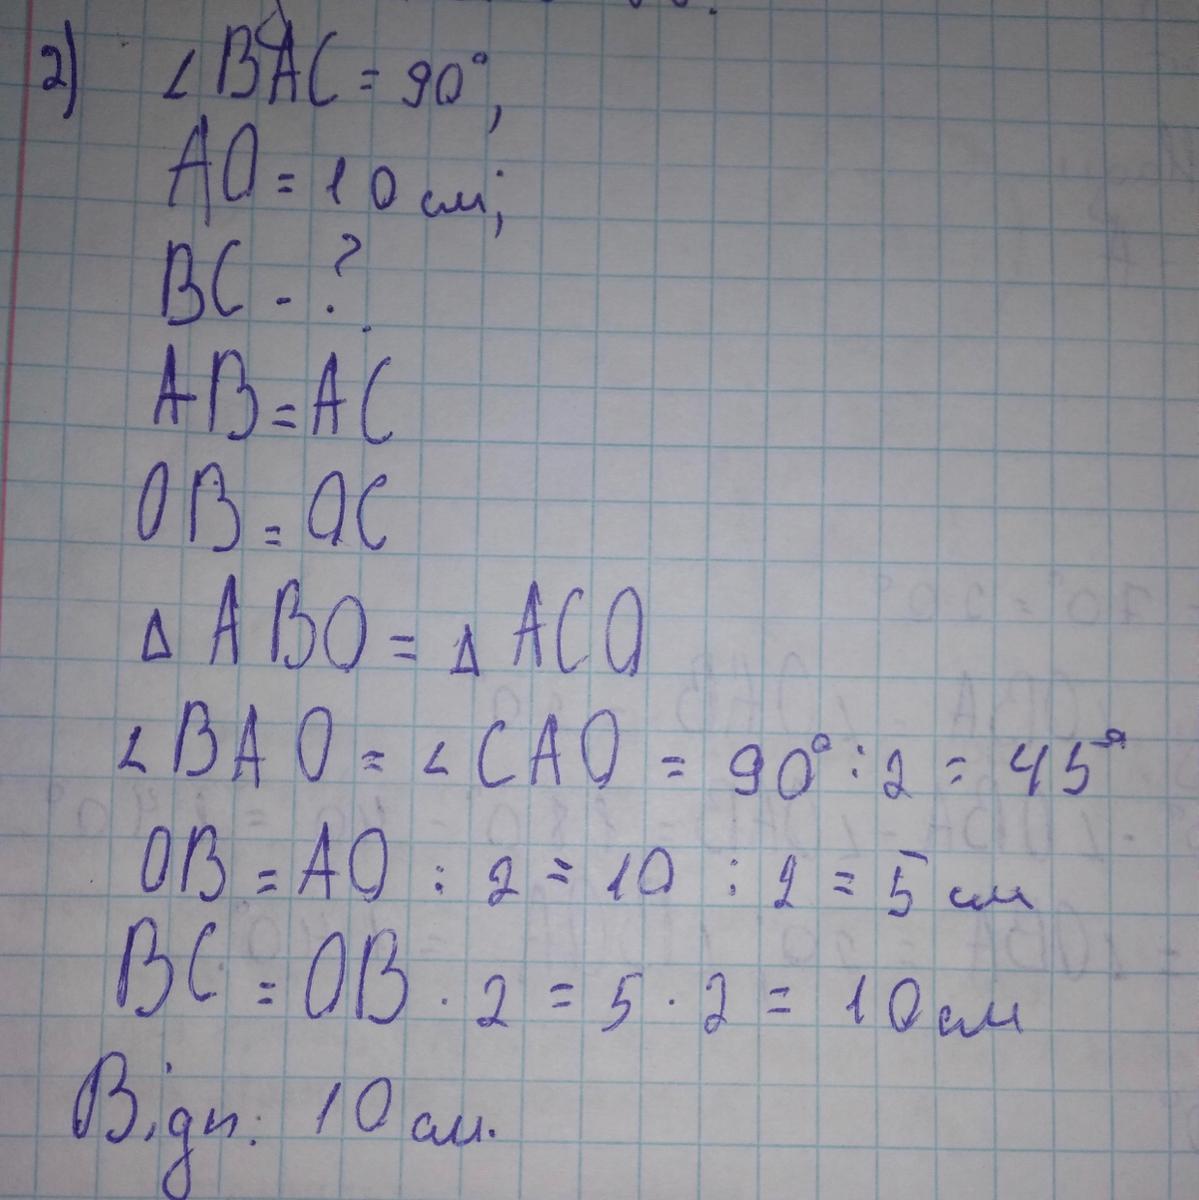 2) ∠BAC = 90°,
AO = 10 см;
BC - ?
AB = AC
OB = OC
Δ ABO = Δ ACO
∠BAO = ∠CAO = 90° : 2 = 45°
OB = AO : 2 = 10 : 2 = 5 см
BC = OB · 2 = 5 · 2 = 10 см
Відп: 10 см.